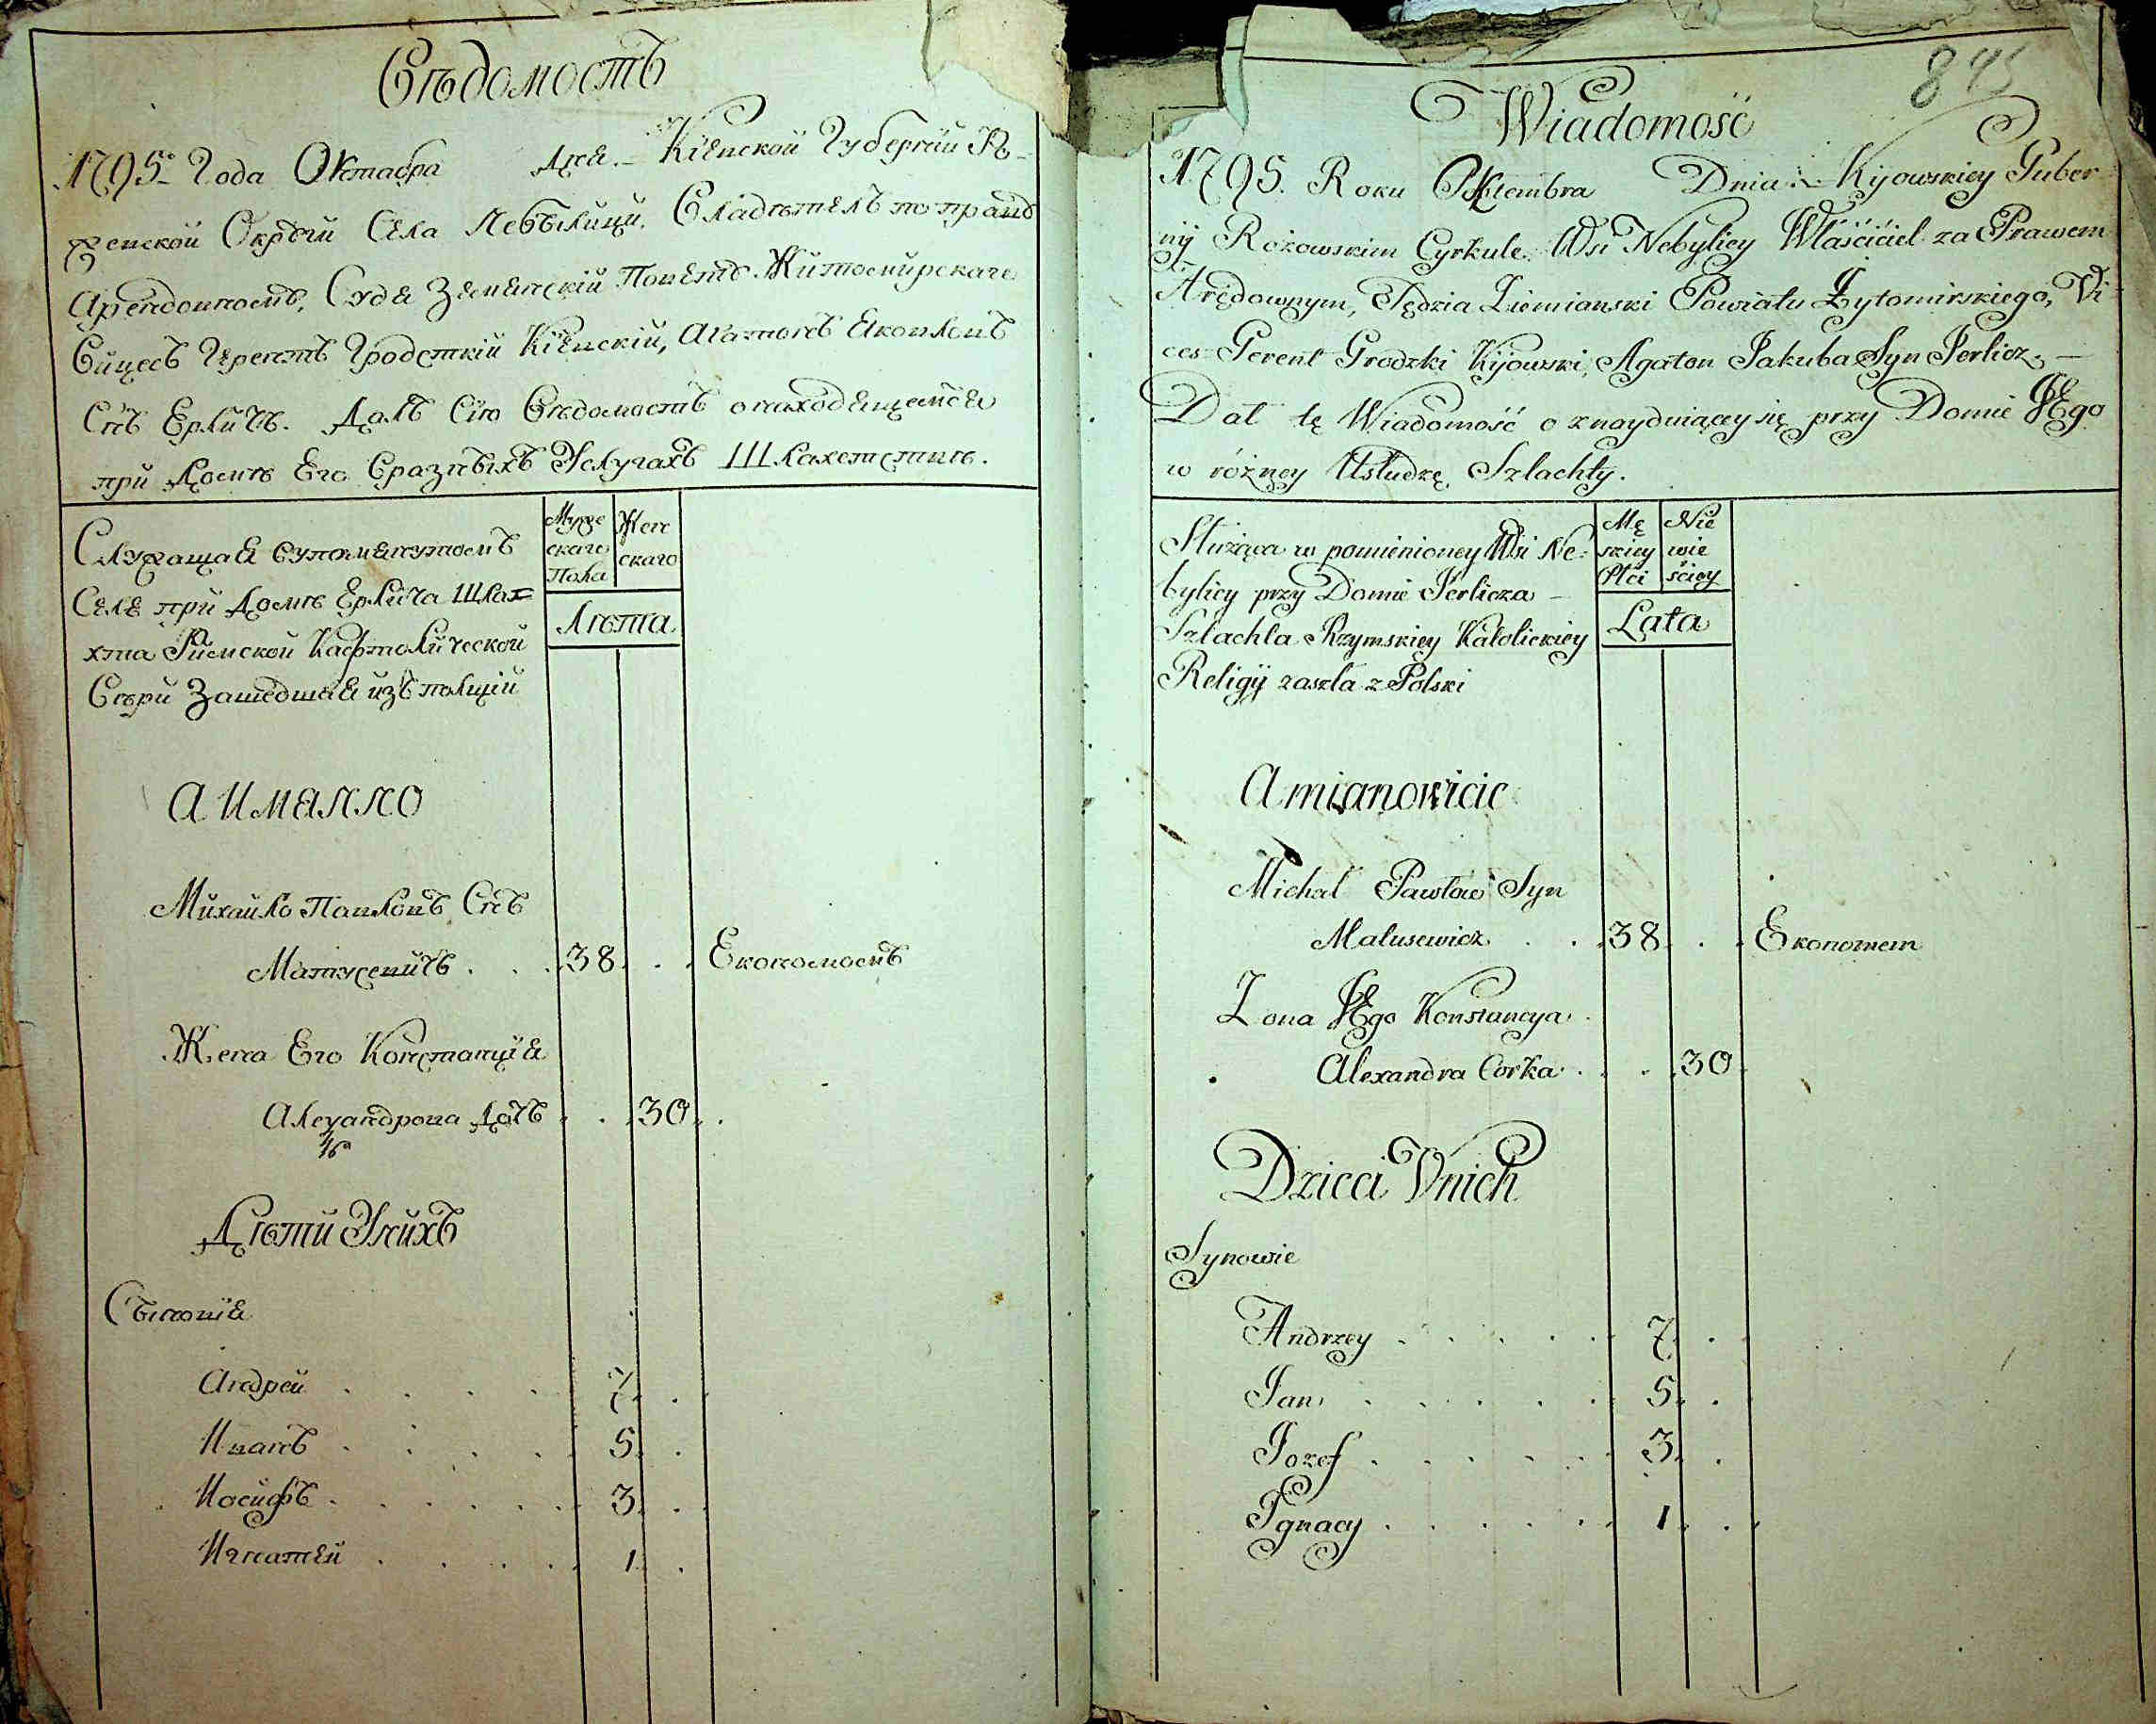 Вѣдомость
1795. Года Октабра Дня. Кіевской Губерніи Ро-
жевской Округи Села Небылици. Владѣтель по праву
Арендовномъ, Судя Земянскій Повету Житомирскаго
Вицесъ Герентъ Гродсткій Кіевскій, Агатонъ Яковлевъ
Снъ Ерличъ. Далъ Сію Вѣдомость онаходящемся
при Доме Его Вразныхъ Услугахъ Шляхетстве.
Служащая вупомянутомъ
Селе при Доме Ерлича Шлях-
хта Римской Кафтолической
Веры Зашедшая изъ полщи
Муже
скаго
Пола
Жен
скаго
Лѣта
А имянно
Михайло Павловъ Снъ
Матусевичъ . . . 38 . . Економомъ
Жена Его Констанция
Александрова Дочь . . 30 . .
Дѣти Унихъ
Сыновія
Андрей . . . . 7 . .
Иванъ . . . . 5 .
Иосифъ . . . . . 3 . .
Игнатей . . . . 1 .
845
Wiadomość
1795. Roku Oktembra Dnia. Kijowskiey Guber-
nij Rożowskim Cyrkule. Wsi Nebylicy Właściciel za Prawem
Arędownym, Sędzia Ziemianski Powiatu Żytomirskiego, Vi-
ces-Gerent Grodzki Kijowski, Agaton Jakuba Syn Jerlicz, -
Dał tę Wiadomość o znayduiącey się przy Domie JEgo
w różney Usłudzę Szlachty.
Służąca w pomienioney Wsi Ne-
bylicy przy Domie Jerlicza -
Szlachta Rzymskiey Katolickiey
Religij zaszła z Polski
Mę
skiey
Płci
Nie
wie
ściey
Lata
Amianowicie
Michał Pawłow Syn
Matusewicz . . . 38 . . Ekonomem
Zona JEgo Konstancya
Alexandra Corka . . . 30
Dzieci Vnich
Synowie
Andrzey . . . . . 7 .
Jan . . . . . 5 .
Jozef . . . . . 3 .
Jgnacy . . . . . 1 . .